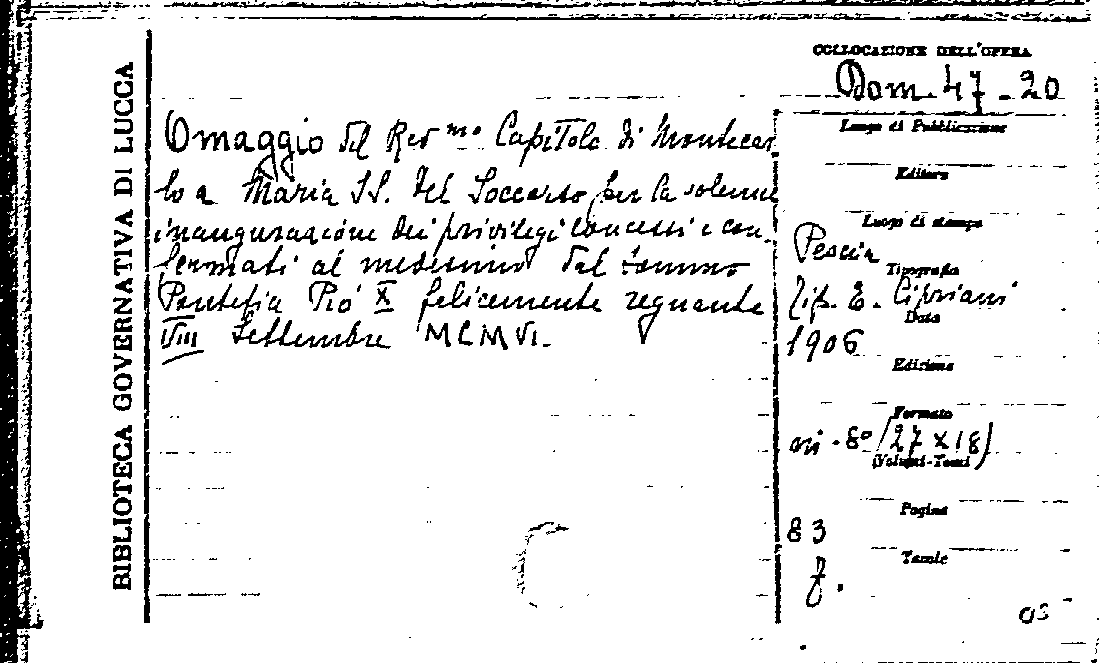 BIBLIOTECA GOVERNATIVA DI LUCCA
COLLOCAZIONE DELL'OPERA
Dom. 47-20
Omaggio del Revmo Capitolo di Montecar
lo a Maria SS. del Soccorso per la solenne
inaugurazione dei privilegi concessi e con-
fermati al medesimo dal sommo
Pontefice Pio X felicemente regnante
VIII Settembre MCMVI.
Luogo di Pubblicazione
Editore
Luogo di stampa
Pescia
Tipografia
Tip. E. Cipriani
Data
1906
Edizione
Formato
in-8° (27x18)
(Volumi-Tomi)
Pagine
83
Tavole
f.